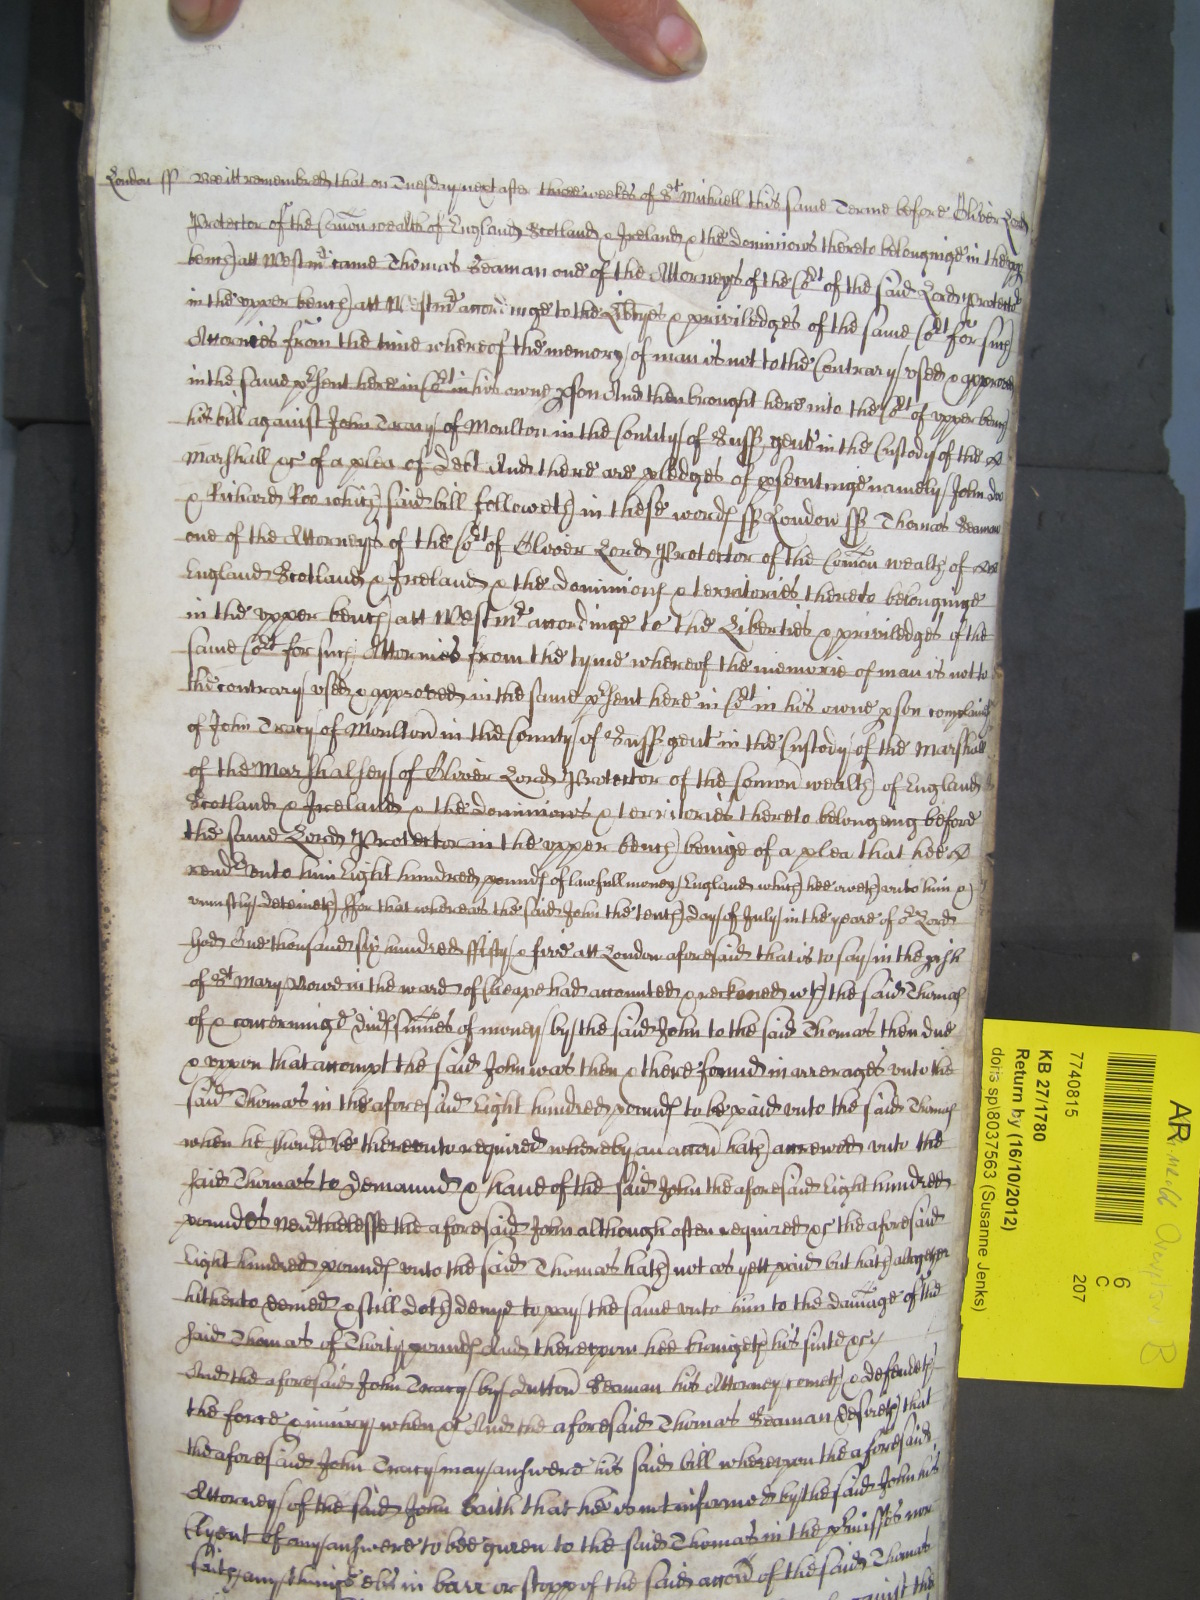 London ss Bee itt remembred that on Tuesday next after three weekes of St Michaell this same Terme before Oliver Lord
Protector of the Comon wealth of England Scotland & Ireland & the dominions thereto belonginge in the upp
bench att Westmr came Thomas Seaman one of the Attorneys of the Cort of the said Lord Protector
in the upper bench att Westmr accordinge to the Libtyes & priviledges of the same Cort for such
Attornies from the time whereof the memory of man is not to the Contrary used & approved
in the same prsent here in Cort in his owne pson And then brought here into the Cort of upper bench
his bill against John Tracy of Moulton in the County of Suff gent in the Custody of the
Marshall &c of a plea of debt And there are pledges of psecutinge namely John Doo
& Richard Roo which said bill followeth in these words ss London ss Thomas Seaman
one of the Attorneys of the Cort of Oliver Lord Protector of the Comon wealth of
England Scotland & Ireland & the dominions & territories thereto belonginge
in the upper bench att Westmr accordinge to the Liberties & priviledges of the
same Cort for such Attornies from the tyme whereof the memorie of man is not to
the contrary used & approved in the same prsent here in Cort in his owne pson complaines
of John Tracy of Moulton in the County of Suff gent in the Custody of the Marshall
of the Marshalsey of Oliver Lord Protector of the Comon wealth of England
Scotland & Ireland & the dominions & territories thereto belonging before
the same Lord Protector in the upper bench beinge of a plea that hee
rendr unto him Eight hundred pounds of lawfull money England which hee oweth unto him &
uniustly deteineth ffor that whereas the said John the tenth day of July in the yeare of or Lord
God One thousand six hundred ffifty & five att London aforesaid that is to say in the pish
of St Mary Bowe in the ward of Cheape had accounted & reckoned wth the said Thomas
of & concerninge divrs sumes of money by the said John to the said Thomas then due
& uppon that accompt the said John was then & there found in arrerages unto the
said Thomas in the aforesaid Eight hundred pounds to be paid unto the said Thomas
when he should be thereunto required whereby an accon hath accrewed unto the
said Thomas to demaund & have of the said John the aforesaid Eight hundred
pounds Nevrthelesse the aforesaid John although often required &c the aforesaid
Eight hundred pounds unto the said Thomas hath not as yett paid but hath altogether
hitherto denied & still doth denye to pay the same unto him to the damage of the
said Thomas of Thirty pounds And thereupon hee bringeth his suite &c
And the aforesaid John Tracy by Dutton Seaman his Attorney cometh & defendeth
the force & iniury when &c And the aforesaid Thomas Seaman desireth that
the aforesaid John Tracy may answere his said bill whereupon the aforesaid
Attorney of the said John saith that hee is not informed by the said John his
Clyent of any answere to bee given to the said Thomas in the prmisses nor
saith any thinge els in barr or stopp of the said accon of the said Thomas
against the
AR
6
C
207
7740815
KB 27/1780
Return by (16/10/2012)
doris sp\8037563 (Susanne Jenks)